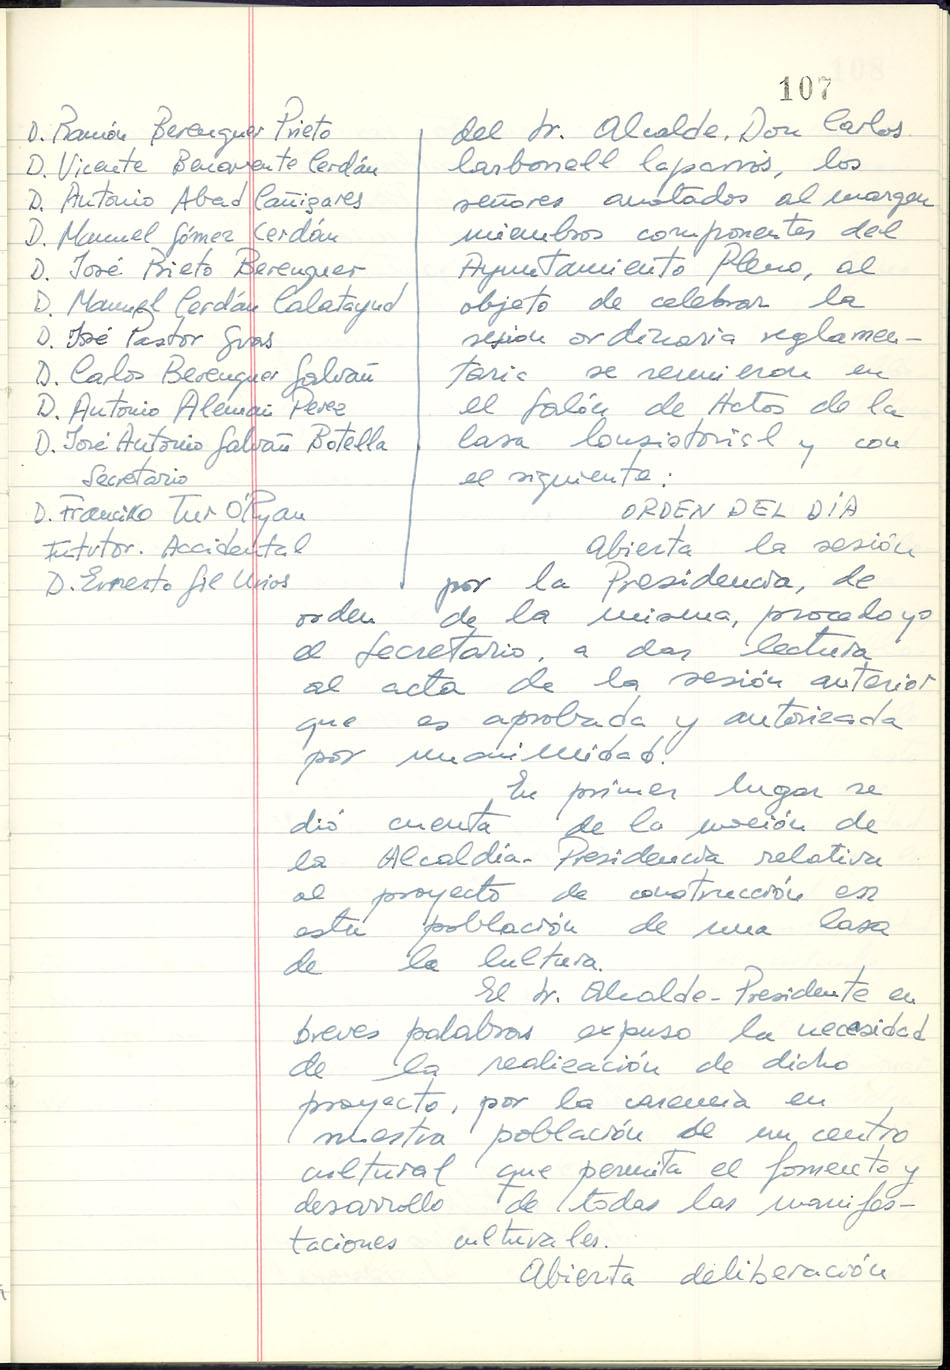 107
D. Ramón Berenguer Prieto
D. Vicente Benavente Cerdán
D. Antonio Abad Cañizares
D. Manuel Gómez Cerdán
D. José Prieto Berenguer
D. Manuel Cerdán Calatayud
D. José Pastor Gras
D. Carlos Berenguer Galvañ
D. Antonio Alemañ Perez
D. José Antonio Galvañ Botella
Secretario
D. Francisco Tur O'Ryan
Intvtor. Accidental
D. Ernesto Gil Urios
del Sr. Alcalde, Don Carlos
Carbonell Caparrós, los
señores anotados al margen
miembros componentes del
Ayuntamiento Pleno, al
objeto de celebrar la
sesion ordinaria reglamen-
taria se reunieron en
el Salón de Actos de la
Casa Consistorial y con
el siguiente:
ORDEN DEL DÍA
Abierta la sesión
por la Presidencia, de
orden de la misma, procedo yo
el Secretario, a dar lectura
al acta de la sesión anterior
que es aprobada y autorizada
por unanimidad.
En primer lugar se
dió cuenta de la moción de
la Alcaldía-Presidencia relativa
al proyecto de construcción en
esta población de una Casa
de la Cultura.
El Sr. Alcalde-Presidente en
breves palabras expuso la necesidad
de la realización de dicho
proyecto, por la carencia en
nuestra población de un centro
cultural que permita el fomento y
desarrollo de todas las manifes-
taciones culturales.
Abierta deliberación